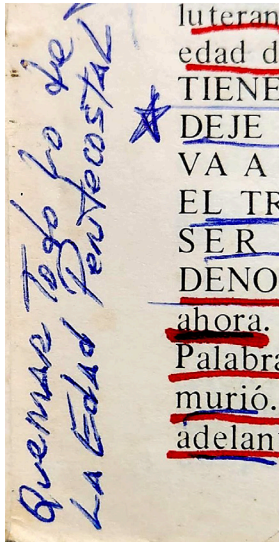 Quemar Todo lo de
La Edad Pentecostal
luteran
edad d
TIENE
DEJE
VA A
EL TR
SER
DENO
ahora.
Palabra
murió.
adelan